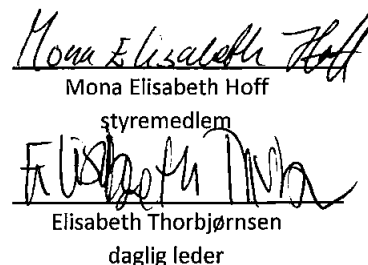 Mona Elisabeth Hoff
Mona Elisabeth Hoff
styremedlem
Elisabeth
Elisabeth Thorbjørnsen
daglig leder